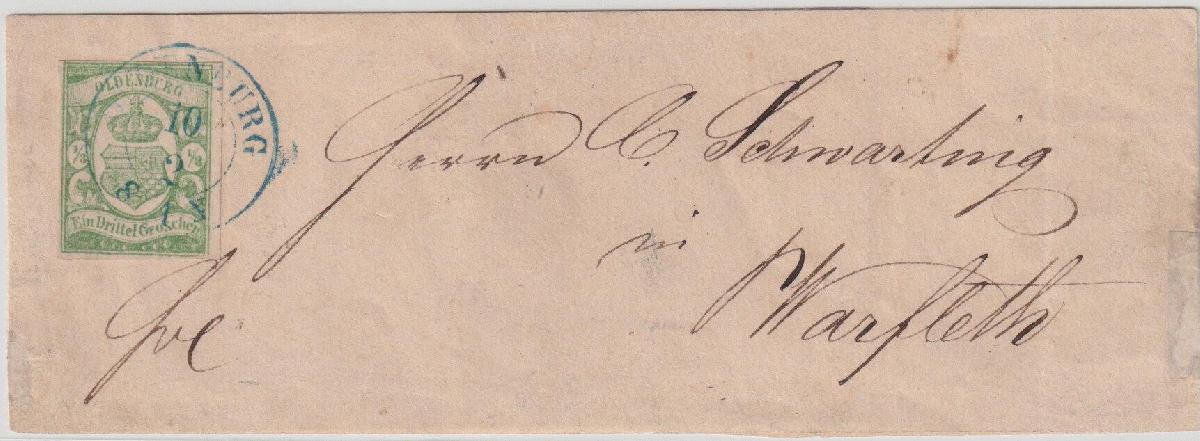 OLDENBURG
1/3 1/3
Ein Drittel Groschen
NBURG
10
2
Herrn C. Schwarting
in
Warfleth